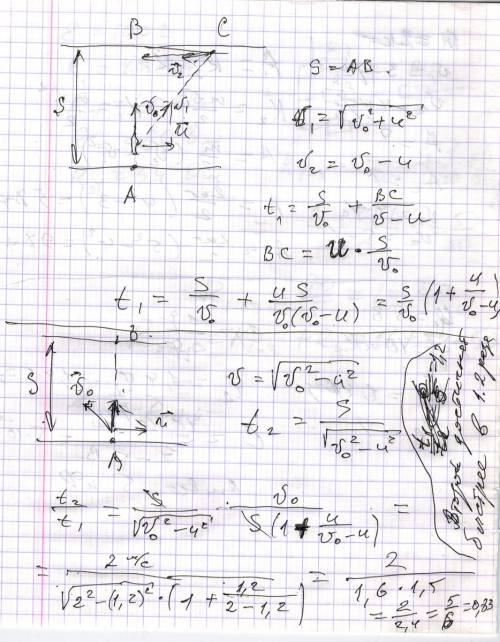 B C
v⃗₂
S = AB.
S v₀ v₁ u⃗
v₁ = √(v₀² + u²)
v₂ = v₀ − u
A
t₁ = S/v₀ + BC/(v − u)
BC = u · S/v₀
t₁ = S/v₀ + uS/(v₀(v₀ − u)) = S/v₀ (1 + u/(v₀ − u))
B
S v⃗₀ u⃗
A
v = √(v₀² − u²)
t₂ = S/√(v₀² − u²)
Второй достигнет
быстрее в 1.2 раза
t₂/t₁ = S/√(v₀² − u²) · v₀/(S(1 + u/(v₀ − u))) =
= 2 м/с/(√(2² − (1,2)²) · (1 + 1,2/(2 − 1,2))) = 2/(1,6 · 1,5)
= 2/2,4 = 5/6 = 0,83